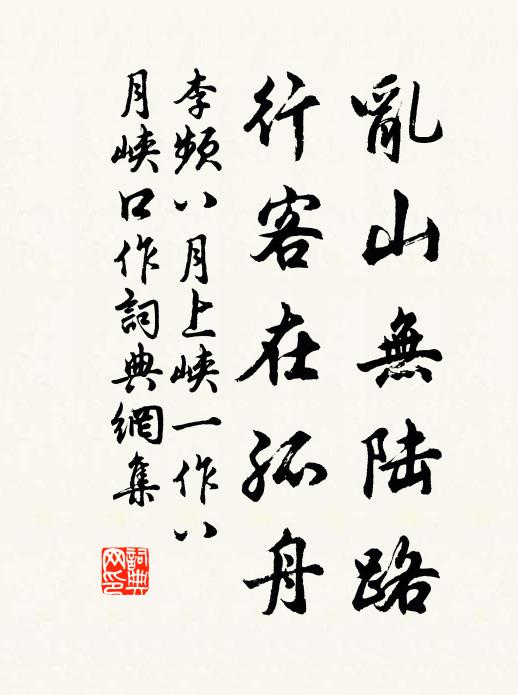 亂山無陸路
行客在孤舟
李頻八月上峽一作八
月峽口作詞典網集
詞典
网印